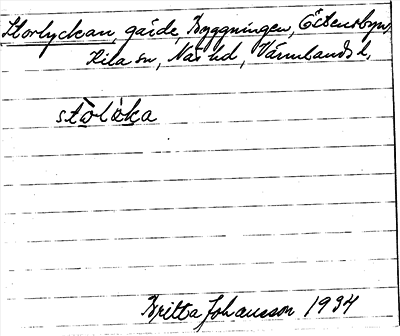 Storlyckan, gärde, Byggningen, Östensbyn,
Kila sn, Näs hd, Värmlands l.
stòlúka
Britta Johansson 1934